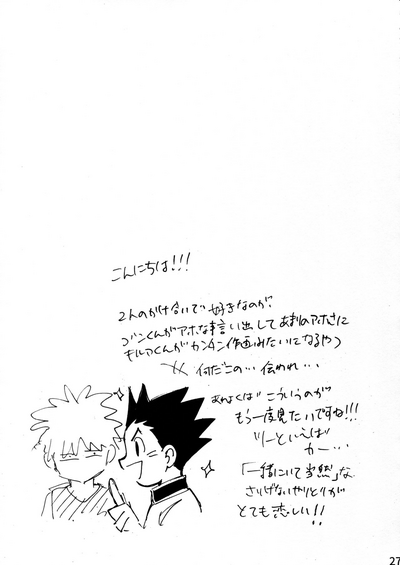 こんにちは!!!
2人のかけ合いで好きなのが、
ゴンくんがアホな事言い出してあまりのアホさに
キルアくんがカンタン作画みたいになるやつ
何だこの…伝われ…
あわよくばこういうのが
もう一度見たいですね!!!
ツーといえば
カー…
「一緒にいて当然」な
さりげないやりとりが
とても恋しい!!
27